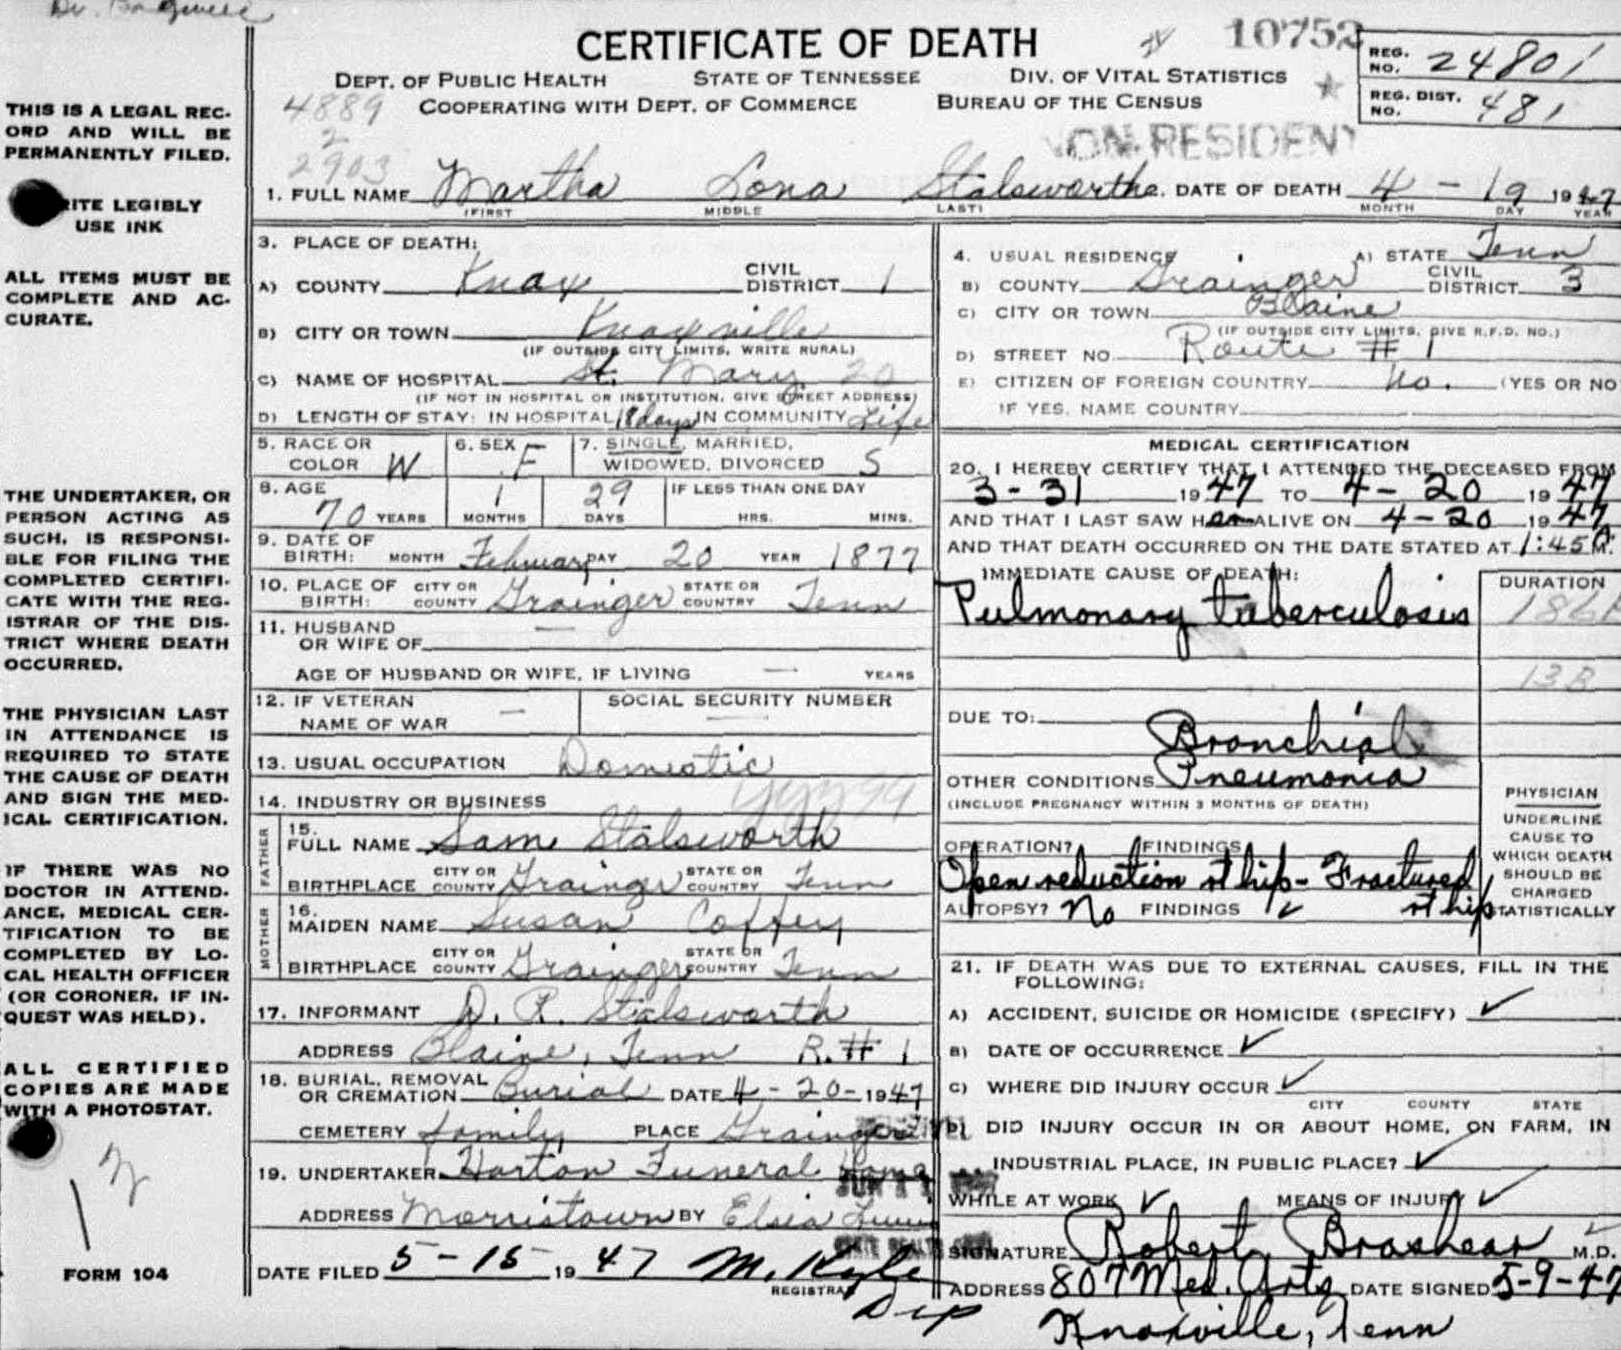 CERTIFICATE OF DEATH
10752
DEPT. OF PUBLIC HEALTH STATE OF TENNESSEE DIV. OF VITAL STATISTICS
COOPERATING WITH DEPT. OF COMMERCE BUREAU OF THE CENSUS
REG. NO. 24801
REG. DIST. NO. 481
4889
2
2903
ON-RESIDENT
1. FULL NAME Martha Lona Stalsworth 2. DATE OF DEATH 4-19 1947
(FIRST MIDDLE LAST) MONTH DAY YEAR
THIS IS A LEGAL REC-
ORD AND WILL BE
PERMANENTLY FILED.
ITE LEGIBLY
USE INK
ALL ITEMS MUST BE
COMPLETE AND AC-
CURATE.
THE UNDERTAKER, OR
PERSON ACTING AS
SUCH, IS RESPONSI-
BLE FOR FILING THE
COMPLETED CERTIFI-
CATE WITH THE REG-
ISTRAR OF THE DIS-
TRICT WHERE DEATH
OCCURRED.
THE PHYSICIAN LAST
IN ATTENDANCE IS
REQUIRED TO STATE
THE CAUSE OF DEATH
AND SIGN THE MED-
ICAL CERTIFICATION.
IF THERE WAS NO
DOCTOR IN ATTEND-
ANCE, MEDICAL CER-
TIFICATION TO BE
COMPLETED BY LO-
CAL HEALTH OFFICER
(OR CORONER, IF IN-
QUEST WAS HELD).
ALL CERTIFIED
COPIES ARE MADE
WITH A PHOTOSTAT.
FORM 104
3. PLACE OF DEATH:
A) COUNTY Knox CIVIL DISTRICT 1
B) CITY OR TOWN Knoxville
(IF OUTSIDE CITY LIMITS, WRITE RURAL)
C) NAME OF HOSPITAL St. Mary 20
(IF NOT IN HOSPITAL OR INSTITUTION, GIVE STREET ADDRESS)
D) LENGTH OF STAY: IN HOSPITAL 18 days IN COMMUNITY Life
5. RACE OR COLOR W 6. SEX F 7. SINGLE, MARRIED, WIDOWED, DIVORCED S
8. AGE 70 YEARS 1 MONTHS 29 DAYS IF LESS THAN ONE DAY HRS. MINS.
9. DATE OF BIRTH: MONTH February DAY 20 YEAR 1877
10. PLACE OF BIRTH: CITY OR COUNTY Grainger STATE OR COUNTRY Tenn
11. HUSBAND OR WIFE OF —
AGE OF HUSBAND OR WIFE, IF LIVING — YEARS
12. IF VETERAN NAME OF WAR — SOCIAL SECURITY NUMBER —
13. USUAL OCCUPATION Domestic
14. INDUSTRY OR BUSINESS
FATHER
15. FULL NAME Sam Stalsworth
BIRTHPLACE CITY OR COUNTY Grainger STATE OR COUNTRY Tenn
MOTHER
16. MAIDEN NAME Susan Coffey
BIRTHPLACE CITY OR COUNTY Grainger STATE OR COUNTRY Tenn
17. INFORMANT D. R. Stalsworth
ADDRESS Blaine, Tenn R. # 1
18. BURIAL, REMOVAL OR CREMATION Burial DATE 4-20-1947
CEMETERY family PLACE Grainger
19. UNDERTAKER Harton Funeral Home
ADDRESS Morristown BY Elsia
DATE FILED 5-15 1947 M. Kyle
REGISTRAR
Dep
4. USUAL RESIDENCE A) STATE Tenn
B) COUNTY Grainger CIVIL DISTRICT 3
C) CITY OR TOWN Blaine
(IF OUTSIDE CITY LIMITS, GIVE R.F.D. NO.)
D) STREET NO. Route # 1
E) CITIZEN OF FOREIGN COUNTRY No. (YES OR NO
IF YES, NAME COUNTRY
MEDICAL CERTIFICATION
20. I HEREBY CERTIFY THAT I ATTENDED THE DECEASED FROM
3-31 1947 TO 4-20 1947
AND THAT I LAST SAW HER ALIVE ON 4-20 1947
AND THAT DEATH OCCURRED ON THE DATE STATED AT 1:45 A M.
IMMEDIATE CAUSE OF DEATH: DURATION
Pulmonary tuberculosis
13B
DUE TO:
Bronchial
OTHER CONDITIONS Pneumonia
(INCLUDE PREGNANCY WITHIN 3 MONTHS OF DEATH)
PHYSICIAN
UNDERLINE
CAUSE TO
WHICH DEATH
SHOULD BE
CHARGED
STATISTICALLY
OPERATION? FINDINGS
Open reduction rt hip - Fractured
AUTOPSY? No FINDINGS ✓ rt hip
21. IF DEATH WAS DUE TO EXTERNAL CAUSES, FILL IN THE
FOLLOWING:
A) ACCIDENT, SUICIDE OR HOMICIDE (SPECIFY) ✓
B) DATE OF OCCURRENCE ✓
C) WHERE DID INJURY OCCUR ✓
CITY COUNTY STATE
D) DID INJURY OCCUR IN OR ABOUT HOME, ON FARM, IN
INDUSTRIAL PLACE, IN PUBLIC PLACE? ✓
WHILE AT WORK ✓ MEANS OF INJURY ✓
SIGNATURE Robert Brashear M.D.
ADDRESS 807 Med. Arts DATE SIGNED 5-9-47
Knoxville, Tenn